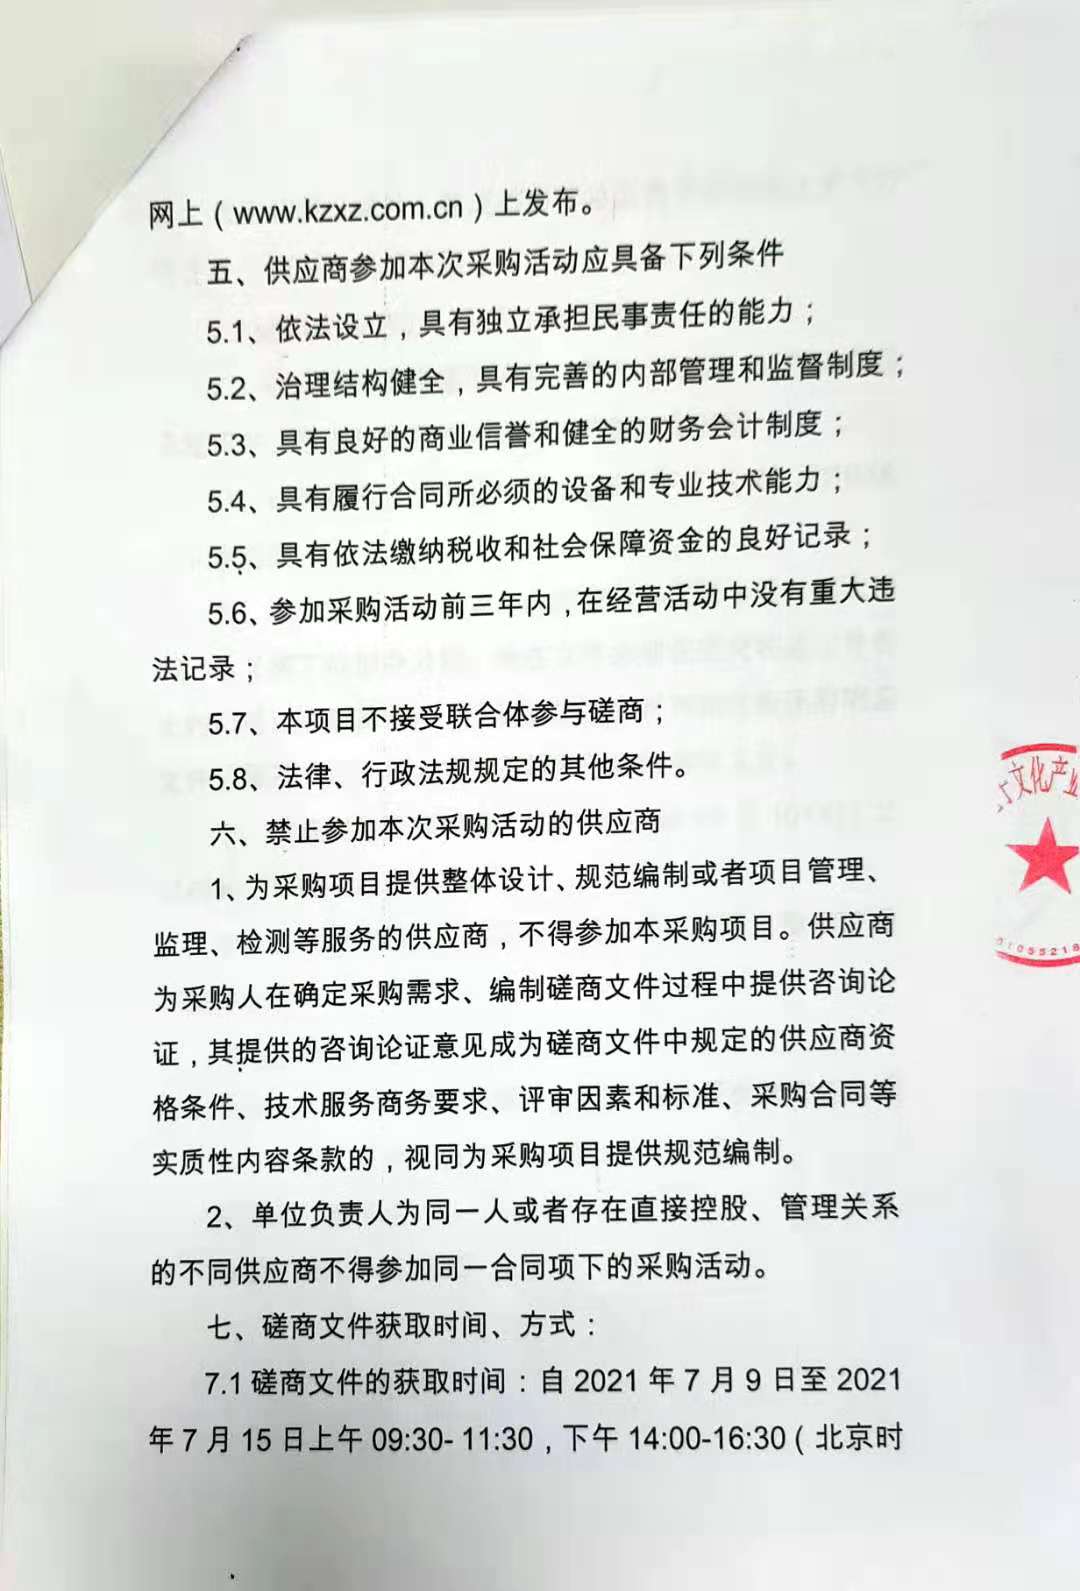 网上（www.kzxz.com.cn）上发布。
五、供应商参加本次采购活动应具备下列条件
5.1、依法设立，具有独立承担民事责任的能力；
5.2、治理结构健全，具有完善的内部管理和监督制度；
5.3、具有良好的商业信誉和健全的财务会计制度；
5.4、具有履行合同所必须的设备和专业技术能力；
5.5、具有依法缴纳税收和社会保障资金的良好记录；
5.6、参加采购活动前三年内，在经营活动中没有重大违
法记录；
5.7、本项目不接受联合体参与磋商；
5.8、法律、行政法规规定的其他条件。
六、禁止参加本次采购活动的供应商
1、为采购项目提供整体设计、规范编制或者项目管理、
监理、检测等服务的供应商，不得参加本采购项目。供应商
为采购人在确定采购需求、编制磋商文件过程中提供咨询论
证，其提供的咨询论证意见成为磋商文件中规定的供应商资
格条件、技术服务商务要求、评审因素和标准、采购合同等
实质性内容条款的，视同为采购项目提供规范编制。
2、单位负责人为同一人或者存在直接控股、管理关系
的不同供应商不得参加同一合同项下的采购活动。
七、磋商文件获取时间、方式：
7.1 磋商文件的获取时间：自 2021 年 7 月 9 日至 2021
年 7 月 15 日上午 09:30- 11:30，下午 14:00-16:30（北京时
文化产业
01055218